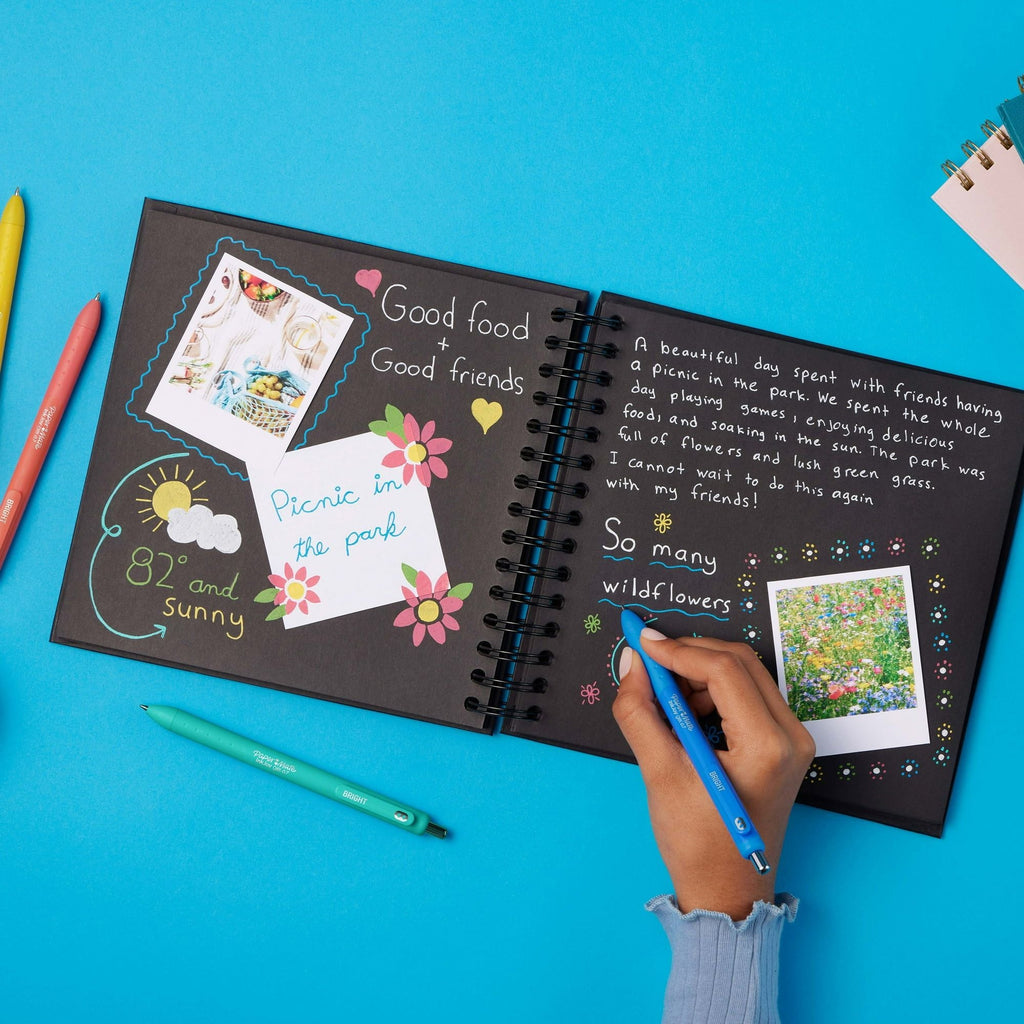 Good food
+
Good friends
Picnic in
the park
82° and
sunny
A beautiful day spent with friends having
a picnic in the park. We spent the whole
day playing games, enjoying delicious
food, and soaking in the sun. The park was
full of flowers and lush green grass.
I cannot wait to do this again
with my friends!
So many
wildflowers
Paper Mate
INKJOY GEL 0.7
BRIGHT
Paper Mate
INKJOY GEL 0.7
BRIGHT
Paper Mate
INKJOY GEL 0.7
BRIGHT